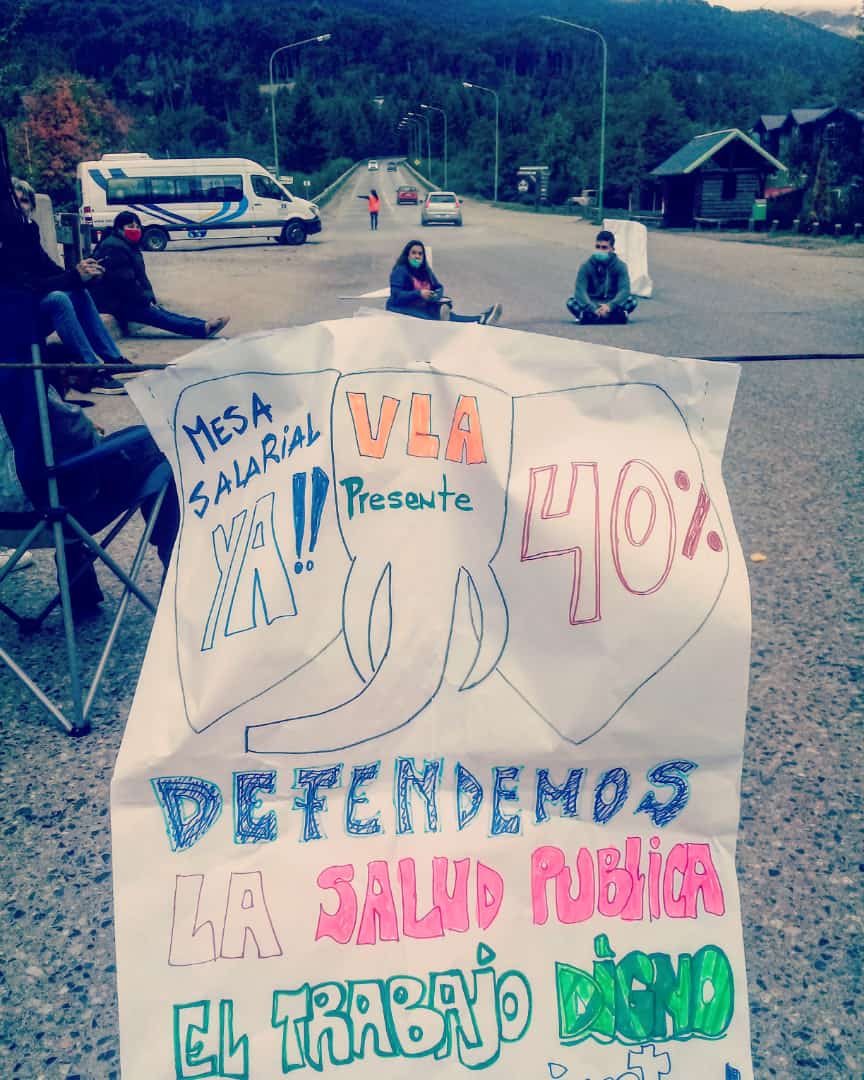 MESA
SALARIAL
YA!!
VLA
Presente
40%
DEFENDEMOS
LA SALUD PUBLICA
EL TRABAJO DIGNO